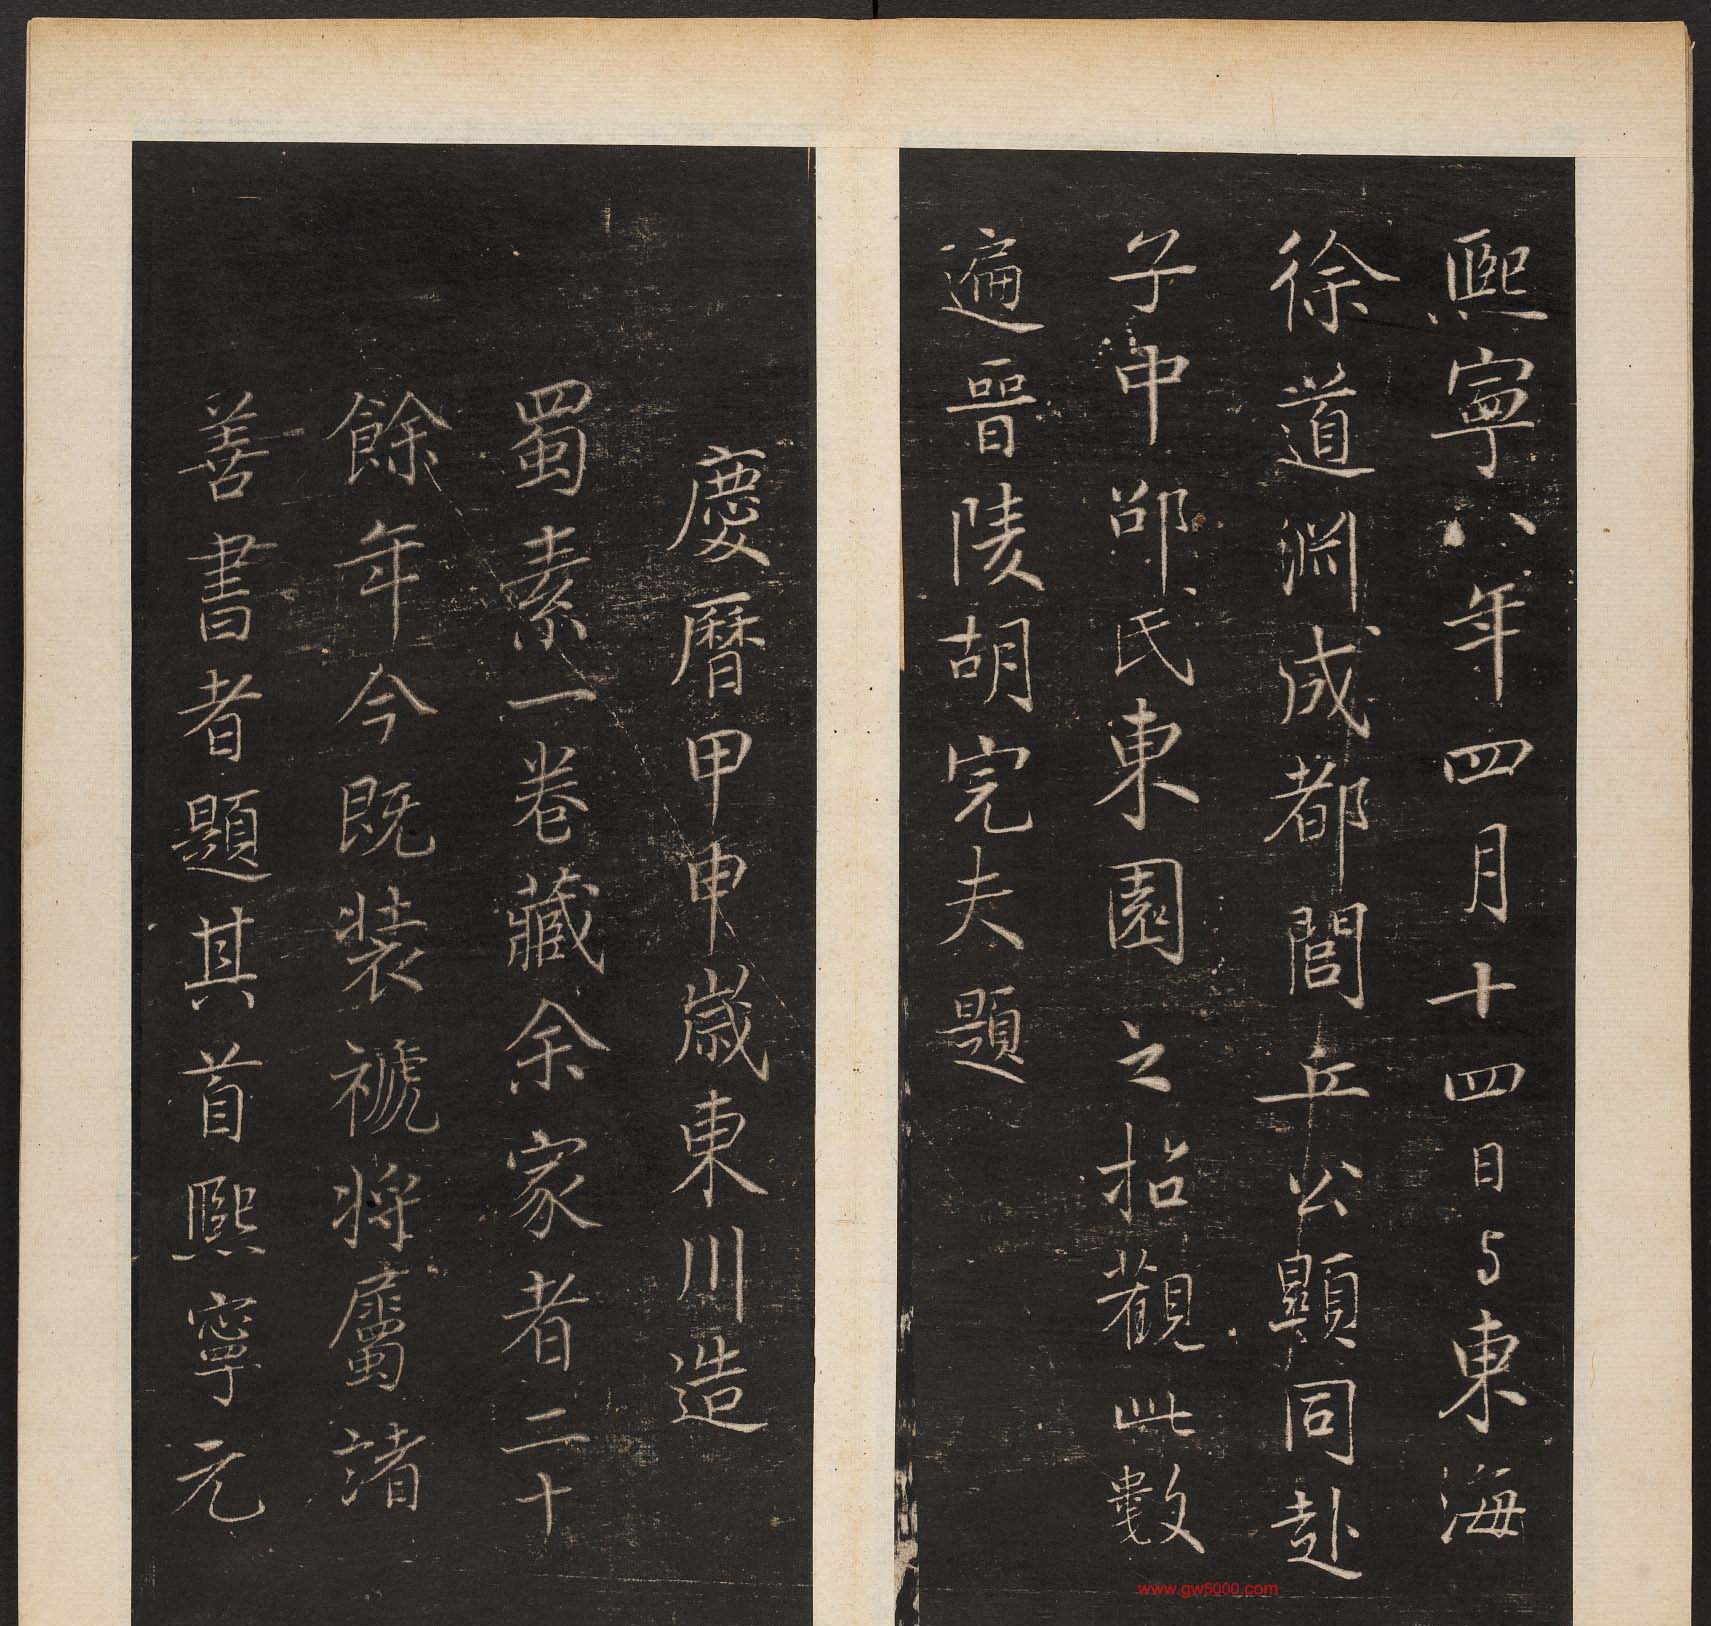 熙寧八年四月十四日与東海
徐道渊成都閭丘公顯同赴
子中邵氏東園之招觀此數
遍晉陵胡完夫題
慶曆甲申歲東川造
蜀素一卷藏余家者二十
餘年今既装褫將屬諸
善書者題其首熙寧元
www.gw5000.com